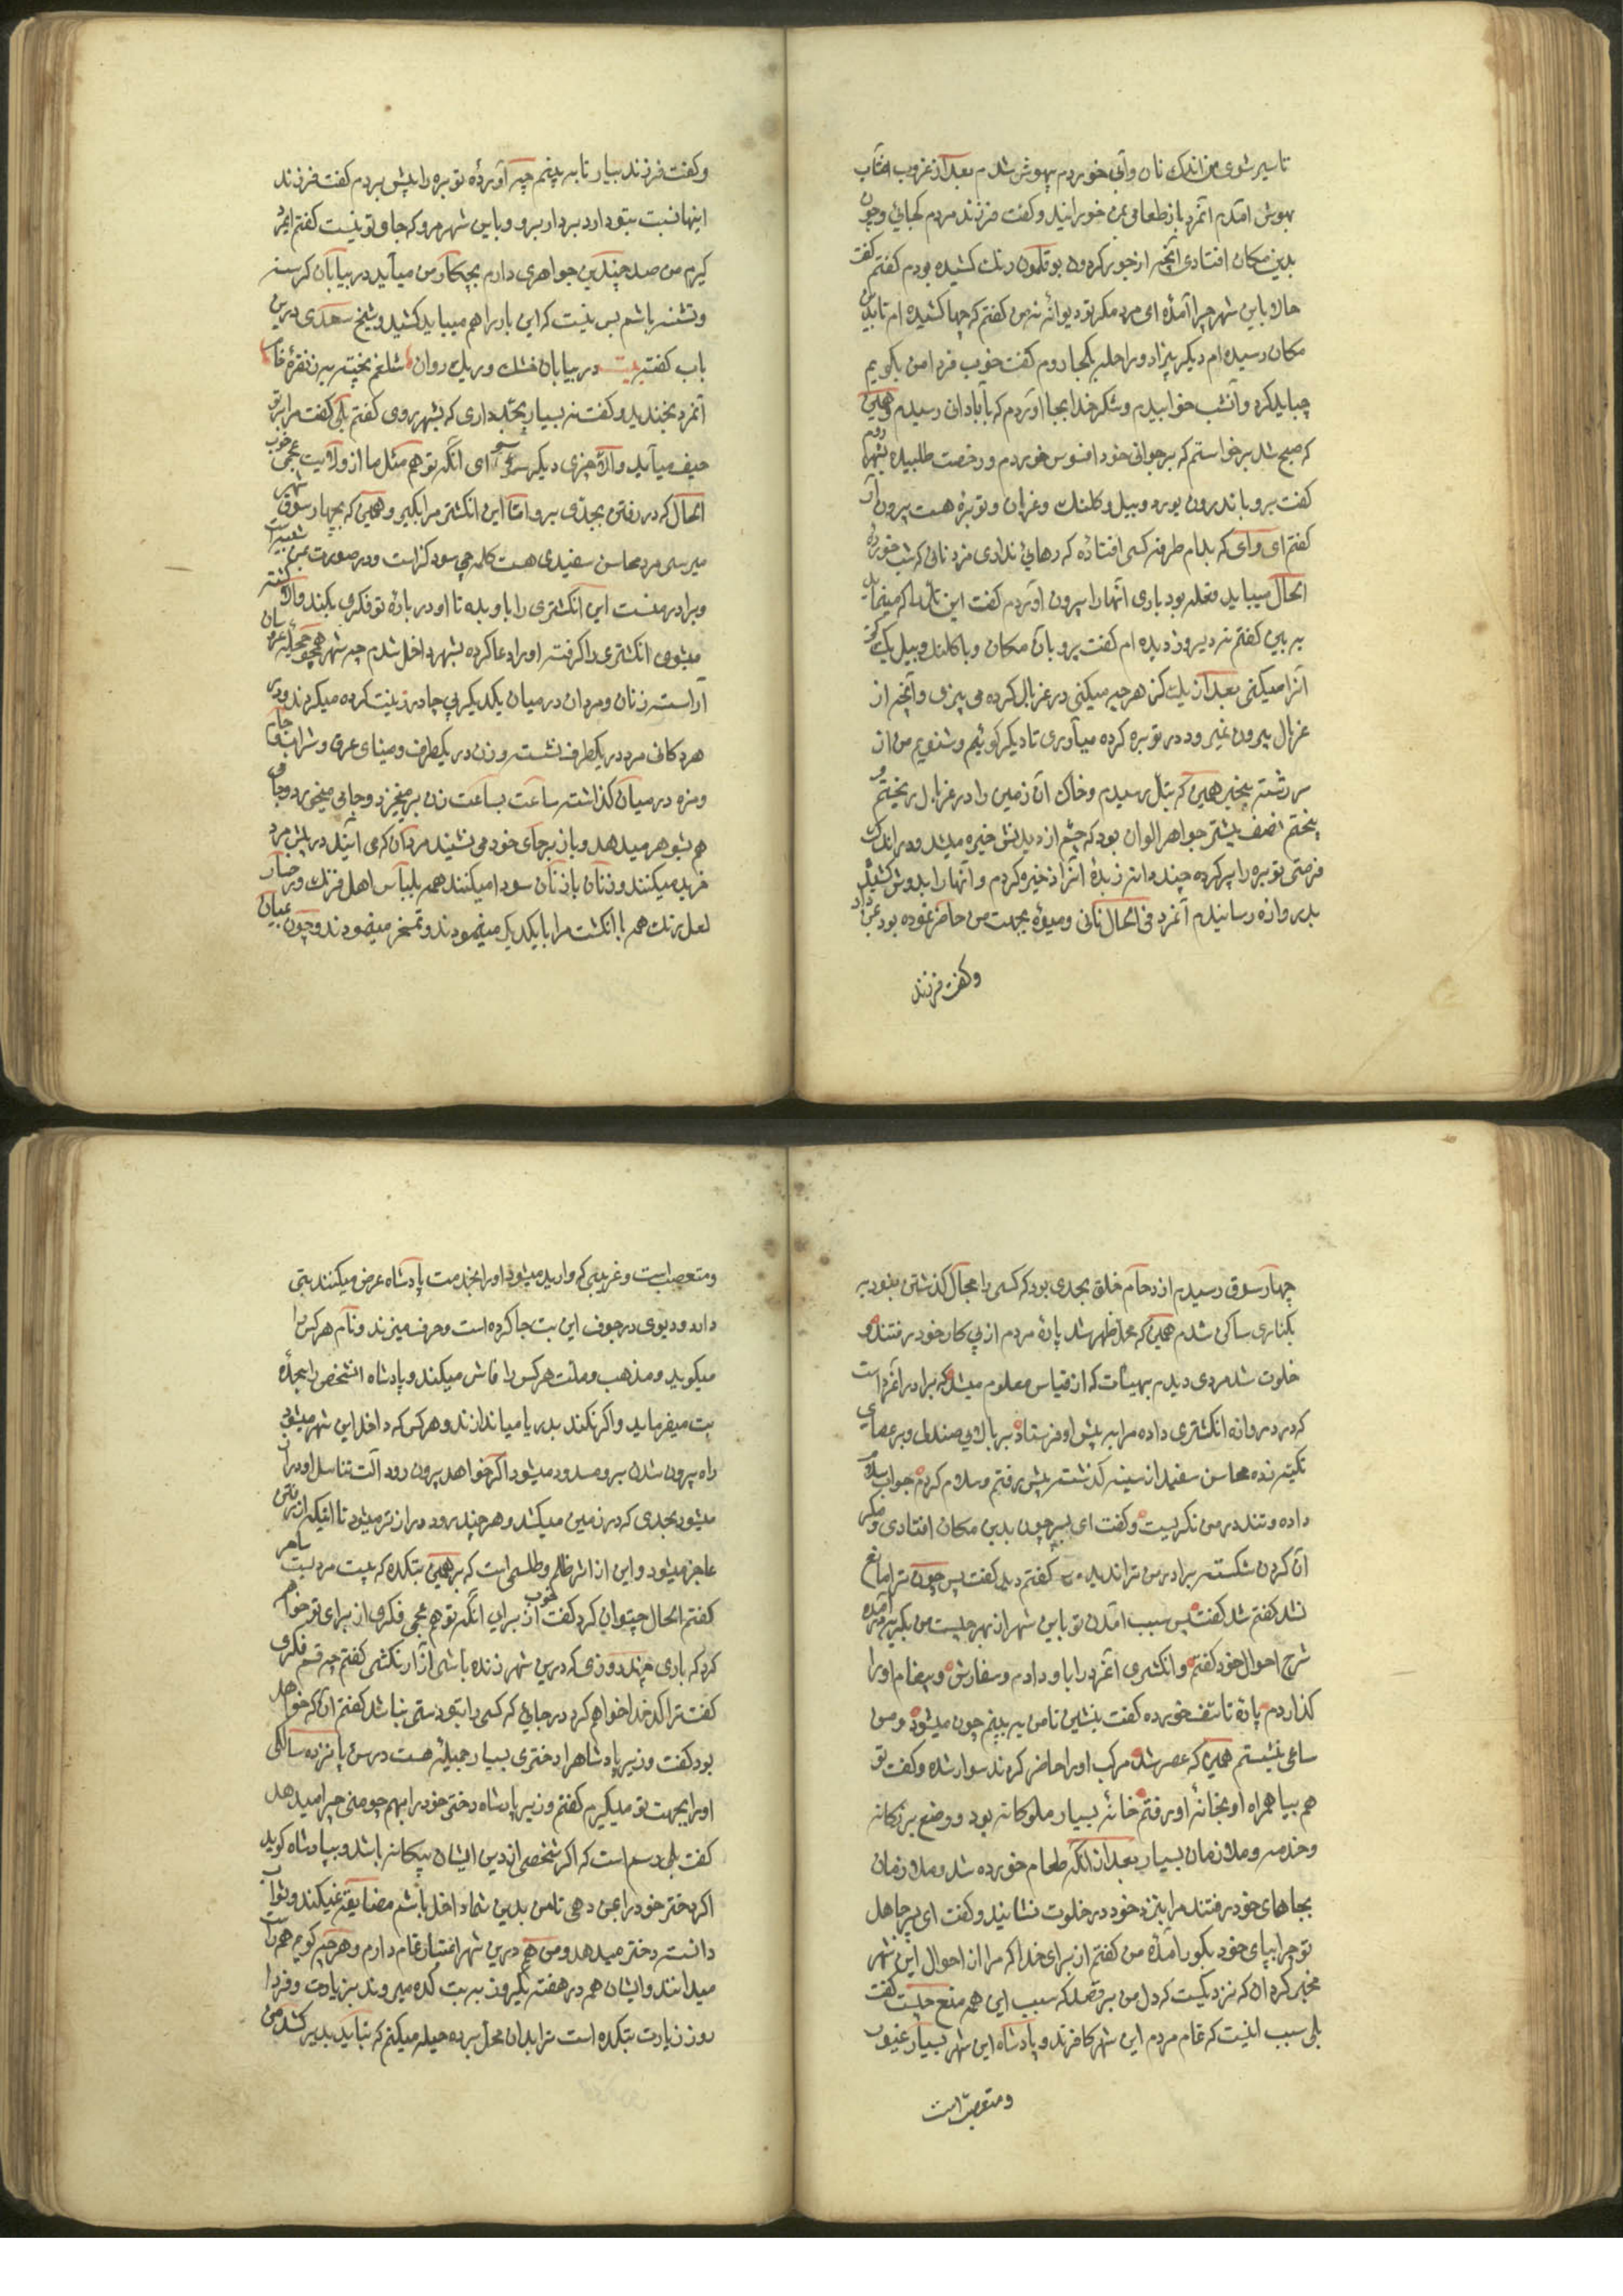 تا سیر شوی من اندک نان و آبی خوردم بیهوش شدم بعد از غروب افتاب
بهوش امدم انمرد باز طعامی بمن خورانید و کفت فرزند مردم کجائی و چون
بدین مکان افتادی آنچه از جور کردون بوقلمون رنک کشیده بودم کفتم کفت
حالا باین شهر چرا آمدهٔ ای مرد مکر تو دیوانهٔ نه من کفتم که چها کشیده ام تا بدین
مکان رسیده ام دیکر بیزاد و راحله بکجا روم کفت خوب فردا من بکویم
چباید کرد و آنشب خوابیدم و شکر خدا بجا اوردم که بآبادانی رسیدم و همین
که صبح شد برخواستم که بر جوانی خود افسوس خوردم و رخصت طلبیده بشهر روم
کفت برو باندرون یورد و بیل و کلنک و غربال و توبرهٔ هست بیرون آر
کفتم ای وای که بدام طرفه کسی افتاده که رهائی ندادی مزد نانی که شب خورده
الحال میباید فعله بود باری آنها را بیرون اوردم کفت این تل را که مینماید
به بین کفتم نه دیروز دیده ام کفت برو بآن مکان و با کلنک و بیل یک کز
آنرا میکنی بعد از یک کز هر چه میکنی در غربال کرده می بیزی و آنچه از
غربال بیرون نمیرود در توبره کرده میآوری تا دیکر کوئیم و شنویم من از
سر رشته بیخبر همین که بتل رسیدم و خاک آن زمین را در غربال ریختم و
بیختم نصف بیشتر جواهر الوان بود که چشم از دیدنش خیره میشد و در اندک
فرصتی توبره را پر کرده چند دانه زبدهٔ آنرا ذخیره کردم و آنها را بدوش کشیده
بدروازه رسانیدم آنمرد فی الحال نانی و میوهٔ بجهت من حاضر نموده بود بمن داد
و کفت فرزند
و کفت فرزند بیار تا به بینم چه آوردهٔ توبره را پیش بردم کفت فرزند
اینها نسبت بتو دارد بردار برو و باین شهر مرو که جای تو نیست کفتم ایمرد
کیرم من صد چندین جواهری دارم بچکار من میآید در بیابان کرسنه
و تشنه باشم بس نیست که این بار را هم میباید کشید و شیخ سعدی درین
باب کفته بیت در بیابان خشک و ریک روان شلغم پخته به ز نقرهٔ خام
آنمرد بخندید و کفت نه بسیار بجد داری که بشهر روی کفتم بلی کفت مرا بر تو
حیف میآید والا چیزی دیکر نیست برای انکه تو هم مثل ما از ولایت عجمی خوب
الحال که در رفتن بجدی برو اما این انکشتر مرا بکیر و همین که بچهار سوق شهر
میرسی مرد محاسن سفیدی هست کله چی سودکر است و در صورت بمن شبیه است
و برادر منست این انکشتری را باو بده تا او در بارهٔ تو فکری بکند والا کشته
میشوی انکشتری را کرفته او را دعا کرده بشهر داخل شدم چه شهر همچو حجلهٔ عروسان
آراسته زنان و مردان در میان یکدیکر بی چادر زینت کرده میکردند و در
هر دکانی مرد در یکطرف نشسته و زن در یکطرف و مینای عرق و شراب و جام
و مزه در میان کذاشته ساعت بساعت زن برمیخیزد و جامی میخورد و جامی
هم بشوهر میدهد و باز بر جای خود می نشیند مردان که می آیند در پیش مرد
خرید میکنند و زنان با زنان سودا میکنند همه بلباس اهل فرنک و رخسار
لعل رنک همه با انکشت مرا با یکدیکر مینمودند و تمسخر مینمودند و چون بمیان
چهار سوق رسیدم ازدحام خلق بحدی بود که کسی را مجال کذشتن نبود به
بکناری ساکن شدم همین که محل ظهر شد پارهٔ مردم از پی کار خود رفتند و
خلوت شد مردی دیدم بهیئات که از قیاس معلوم میشد که برادر آنمرد است
که در دروازه انکشتری داده مرا به پیش او فرستاد بر بالای صندلی و بر عصای
تکیه زده محاسن سفید از سینه کذشته پیش رفتم و سلام کردم جواب سلام
داده و تند در من نکریست و کفت ای پسر چون بدین مکان افتادی و مکر
آن کردن شکسته برادر من ترا ندید کفتم دید کفت پس چون ترا مانع
نشد کفتم شد کفت پس سبب امدن تو باین شهر از بهر چیست من بکریه درآمده
شرح احوال خود کفتم و انکشتری آنمرد را باو دادم و سفارش و پیغام او را
کذاردم پارهٔ تاسف خورده کفت بنشین تا من به بینم چون میشود و من
ساعی نشستم همین که عصر شد مرکب او را حاضر کردند سوار شده و کفت تو
هم بیا همراه او بخانهٔ او رفتم خانهٔ بسیار ملوکانه بود و وضع بزرکانه
و خدمه و ملازمان بسیار بعد از انکه طعام خورده شد و ملازمان
بجاهای خود رفتند مرا بنزد خود در خلوت نشانید و کفت ای پسر جاهل
تو چرا بپای خود بکور آمدهٔ من کفتم از برای خدا که مرا از احوال این شهر
مخبر کردان که نزدیکست که دل من بترقد که سبب این همه منع چیست کفت
بلی سبب اینست که تمام مردم این شهر کافرند و پادشاه این شهر بسیار غیور
و متعصب است
و متعصب است و غریبی که وارد میشود او را بخدمت پادشاه عرض میکنند بتی
دارد و دیوی در جوف این بت جا کرده است و حرف میزند و نام هر کس را
میکوید و مذهب و ملت هر کس را فاش میکند و پادشاه انشخص را بسجدهٔ
بت میفرماید و اکر نکند بدریا میاندازند و هر کس که داخل این شهر میشود
راه بیرون شدن برو مسدود میشود اکر خواهد بیرون رود آلت تناسل او دراز
میشود بحدی که در زمین میکشد و هر چند برود درازتر میشود تا اینکه از رفتن
عاجز میشود و این از اثر ظلم و طلسمی است که بر همین بتکده که بیت مردیست ساحر
کفتم الحال چتوان کرد کفت خوب از برای آنکه تو هم عجمی فکری از برای تو خواهم
کرد که باری چند روزی که درین شهر زنده باشی آزار نکشی کفتم چه قسم فکری
کفت ترا کدخدا خواهم کرد در جائی که کسی را بتو دستی نباشد کفتم آن که خواهد
بود کفت وزیر پادشاه را دختری بسیار جمیله هست در سن پانزده سالکی
او را بجهت تو میکیرم کفتم وزیر پادشاه دختر خود را بهمچو منی چرا میدهد
کفت بلی رسم است که اکر شخصی از دین ایشان بیکانه باشد و بپادشاه کوید
اکر دختر خود را بمن دهی تا من بدین شما داخل باشم مضایقه نمیکند و ثواب
دانسته دختر میدهد و من هم درین شهر اعتبار تمام دارم و هر چه کویم همه راست
میدانند و ایشان هم در هفته یکروز به بت کده میروند بزیارت و فردا
روز زیارت بتکده است ترا بدان محل برده حیله میکنم که نباید بدیر کشد من